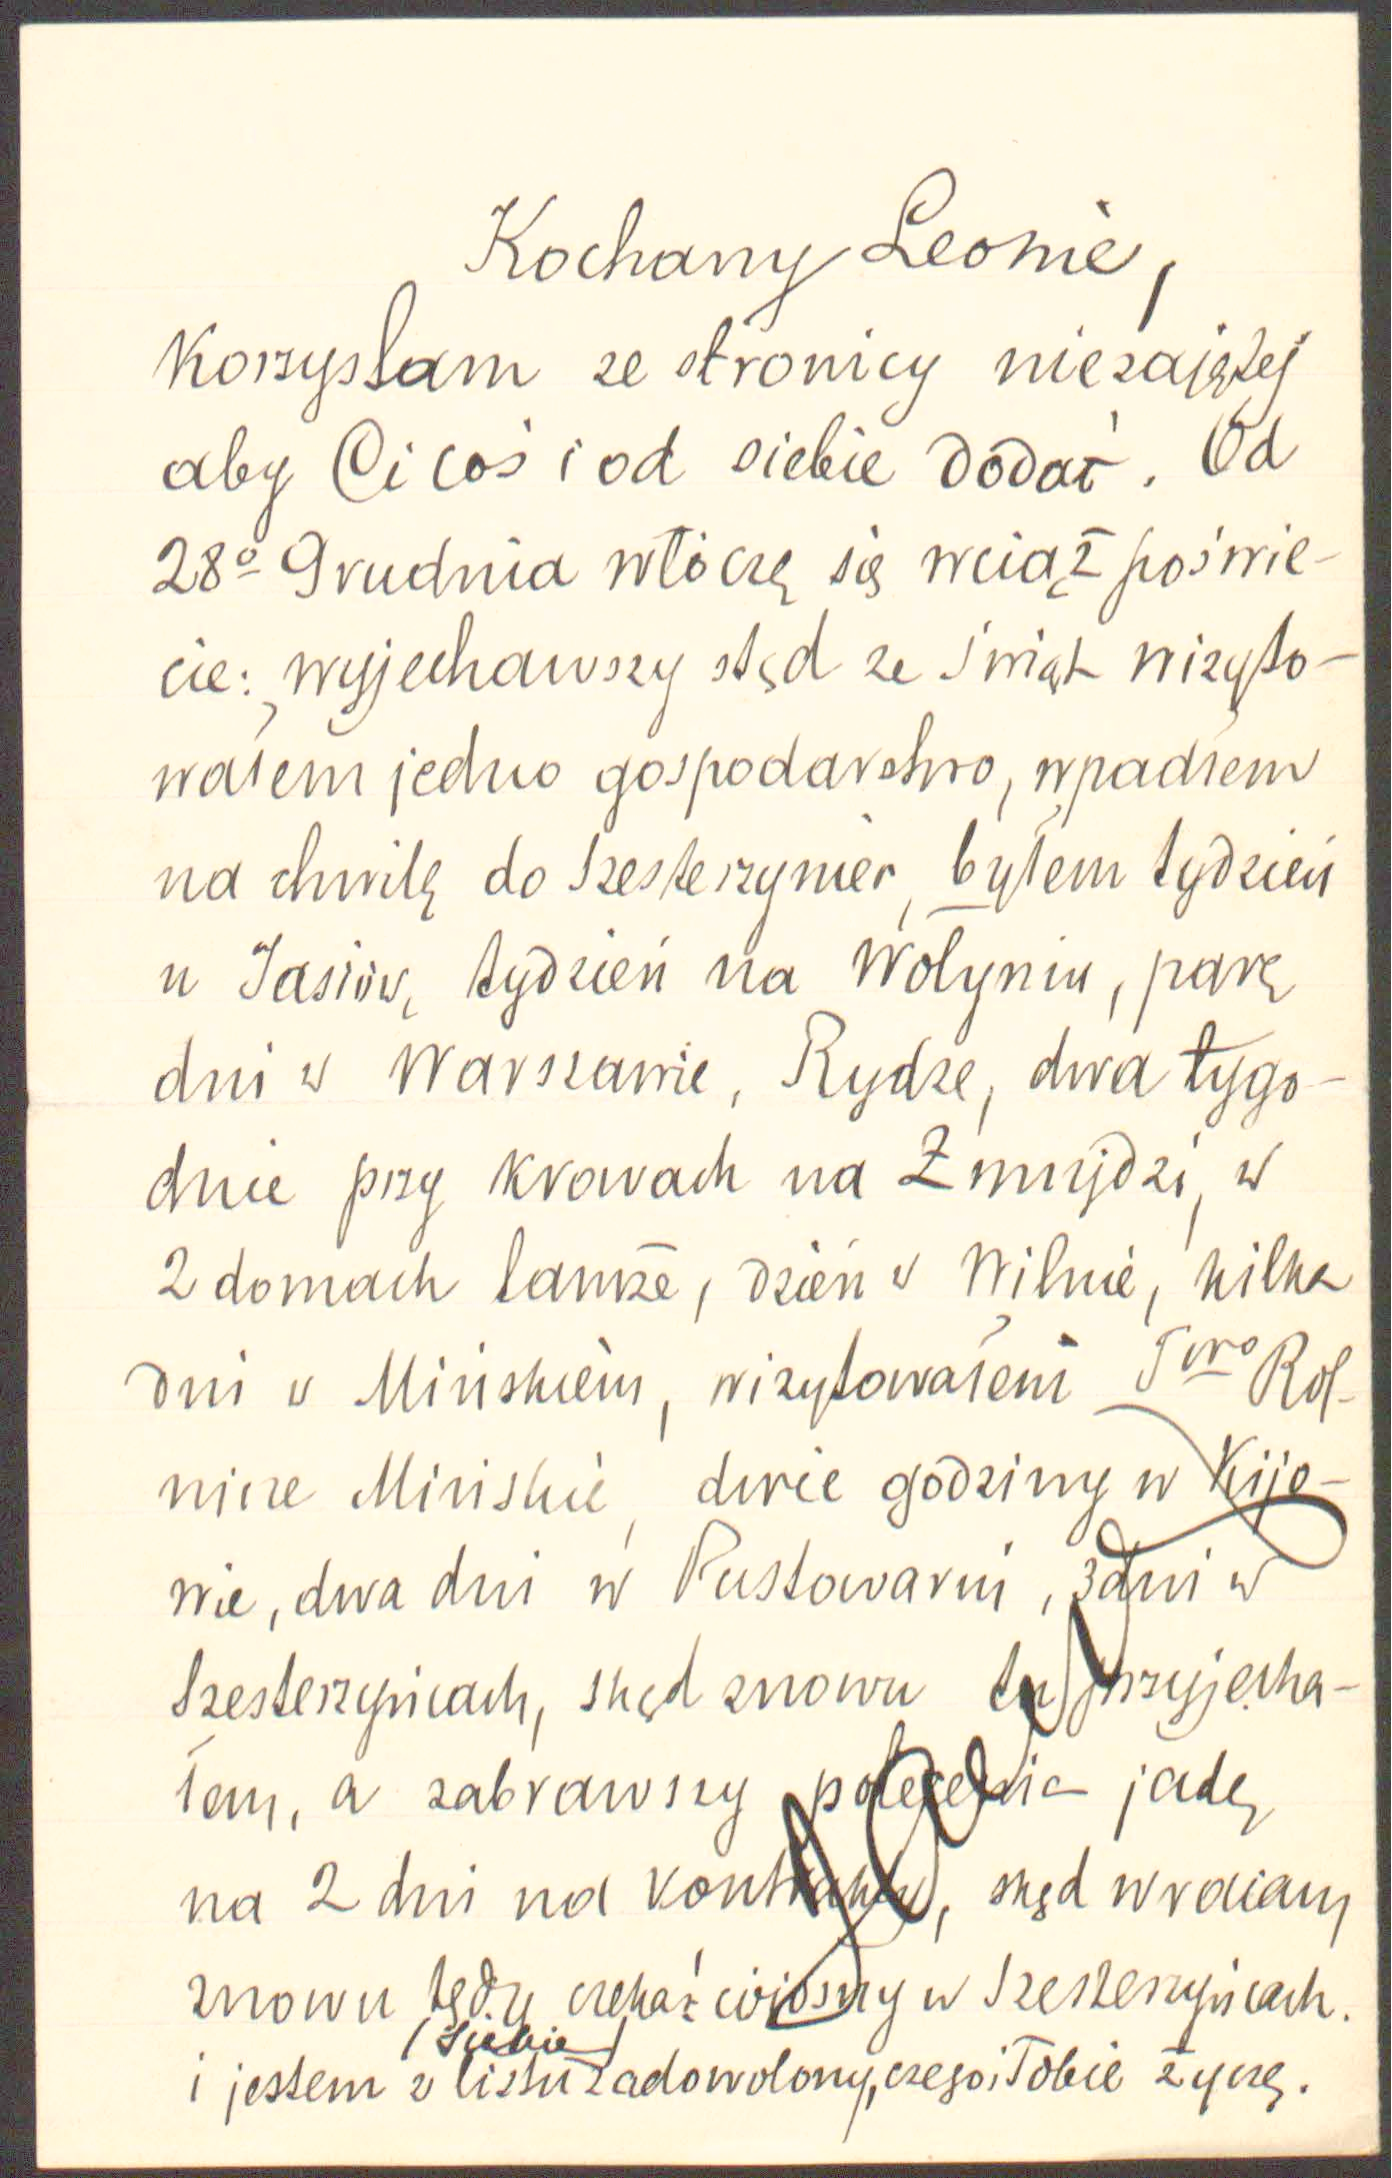 Kochany Leonie,
Korzystam ze stronicy niezajętej
aby Ci coś i od siebie dodać. Od
28º Grudnia włóczę się wciąż po świe-
cie: wyjechawszy stąd ze świąt wizyto-
wałem jedno gospodarstwo, wpadłem
na chwilę do Szesterzyniec, byłem tydzień
u Jasiów, tydzień na Wołyniu, parę
dni w Warszawie, Rydze, dwa tygo-
dnie przy krowach na Żmujdzi, w
2 domach tamże, dzień w Wilnie, kilka
dni w Mińskiem, wizytowałem Two Rol-
nicze Mińskie, dwie godziny w Kijo-
wie, dwa dni w Pustowarni, 3 dni w
Szesterzyńcach, skąd znowu tu przyjecha-
łem, a zabrawszy polecenia jadę
na 2 dni na kontrakty, skąd wracam
znowu tędy czekać wiosny w Szesterzyńcach.
(siebie)
i jestem z listu zadowolony, czego i Tobie życzę.